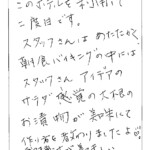 このホテルを利用して
二度目です。
スタッフさんはあたたかく、
朝食バイキングの中には、
スタッフさん アイデアの
サラダ感覚の大根の
お漬物が美味にて
作り方を教わりました。